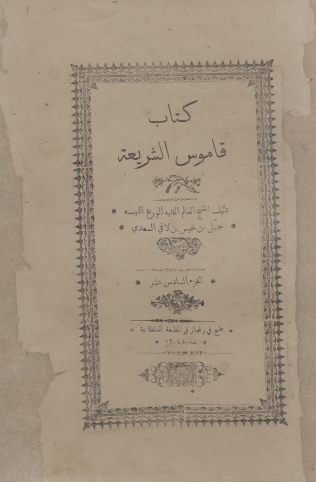 كتاب
قاموس الشريعة
تأليف الشيخ العالم الفقيه الورع النبيه
جميل بن خميس بن لافي السعدي
الجزء السادس عشر
طبع في زنجبار في المطبعة السلطانية
سنة